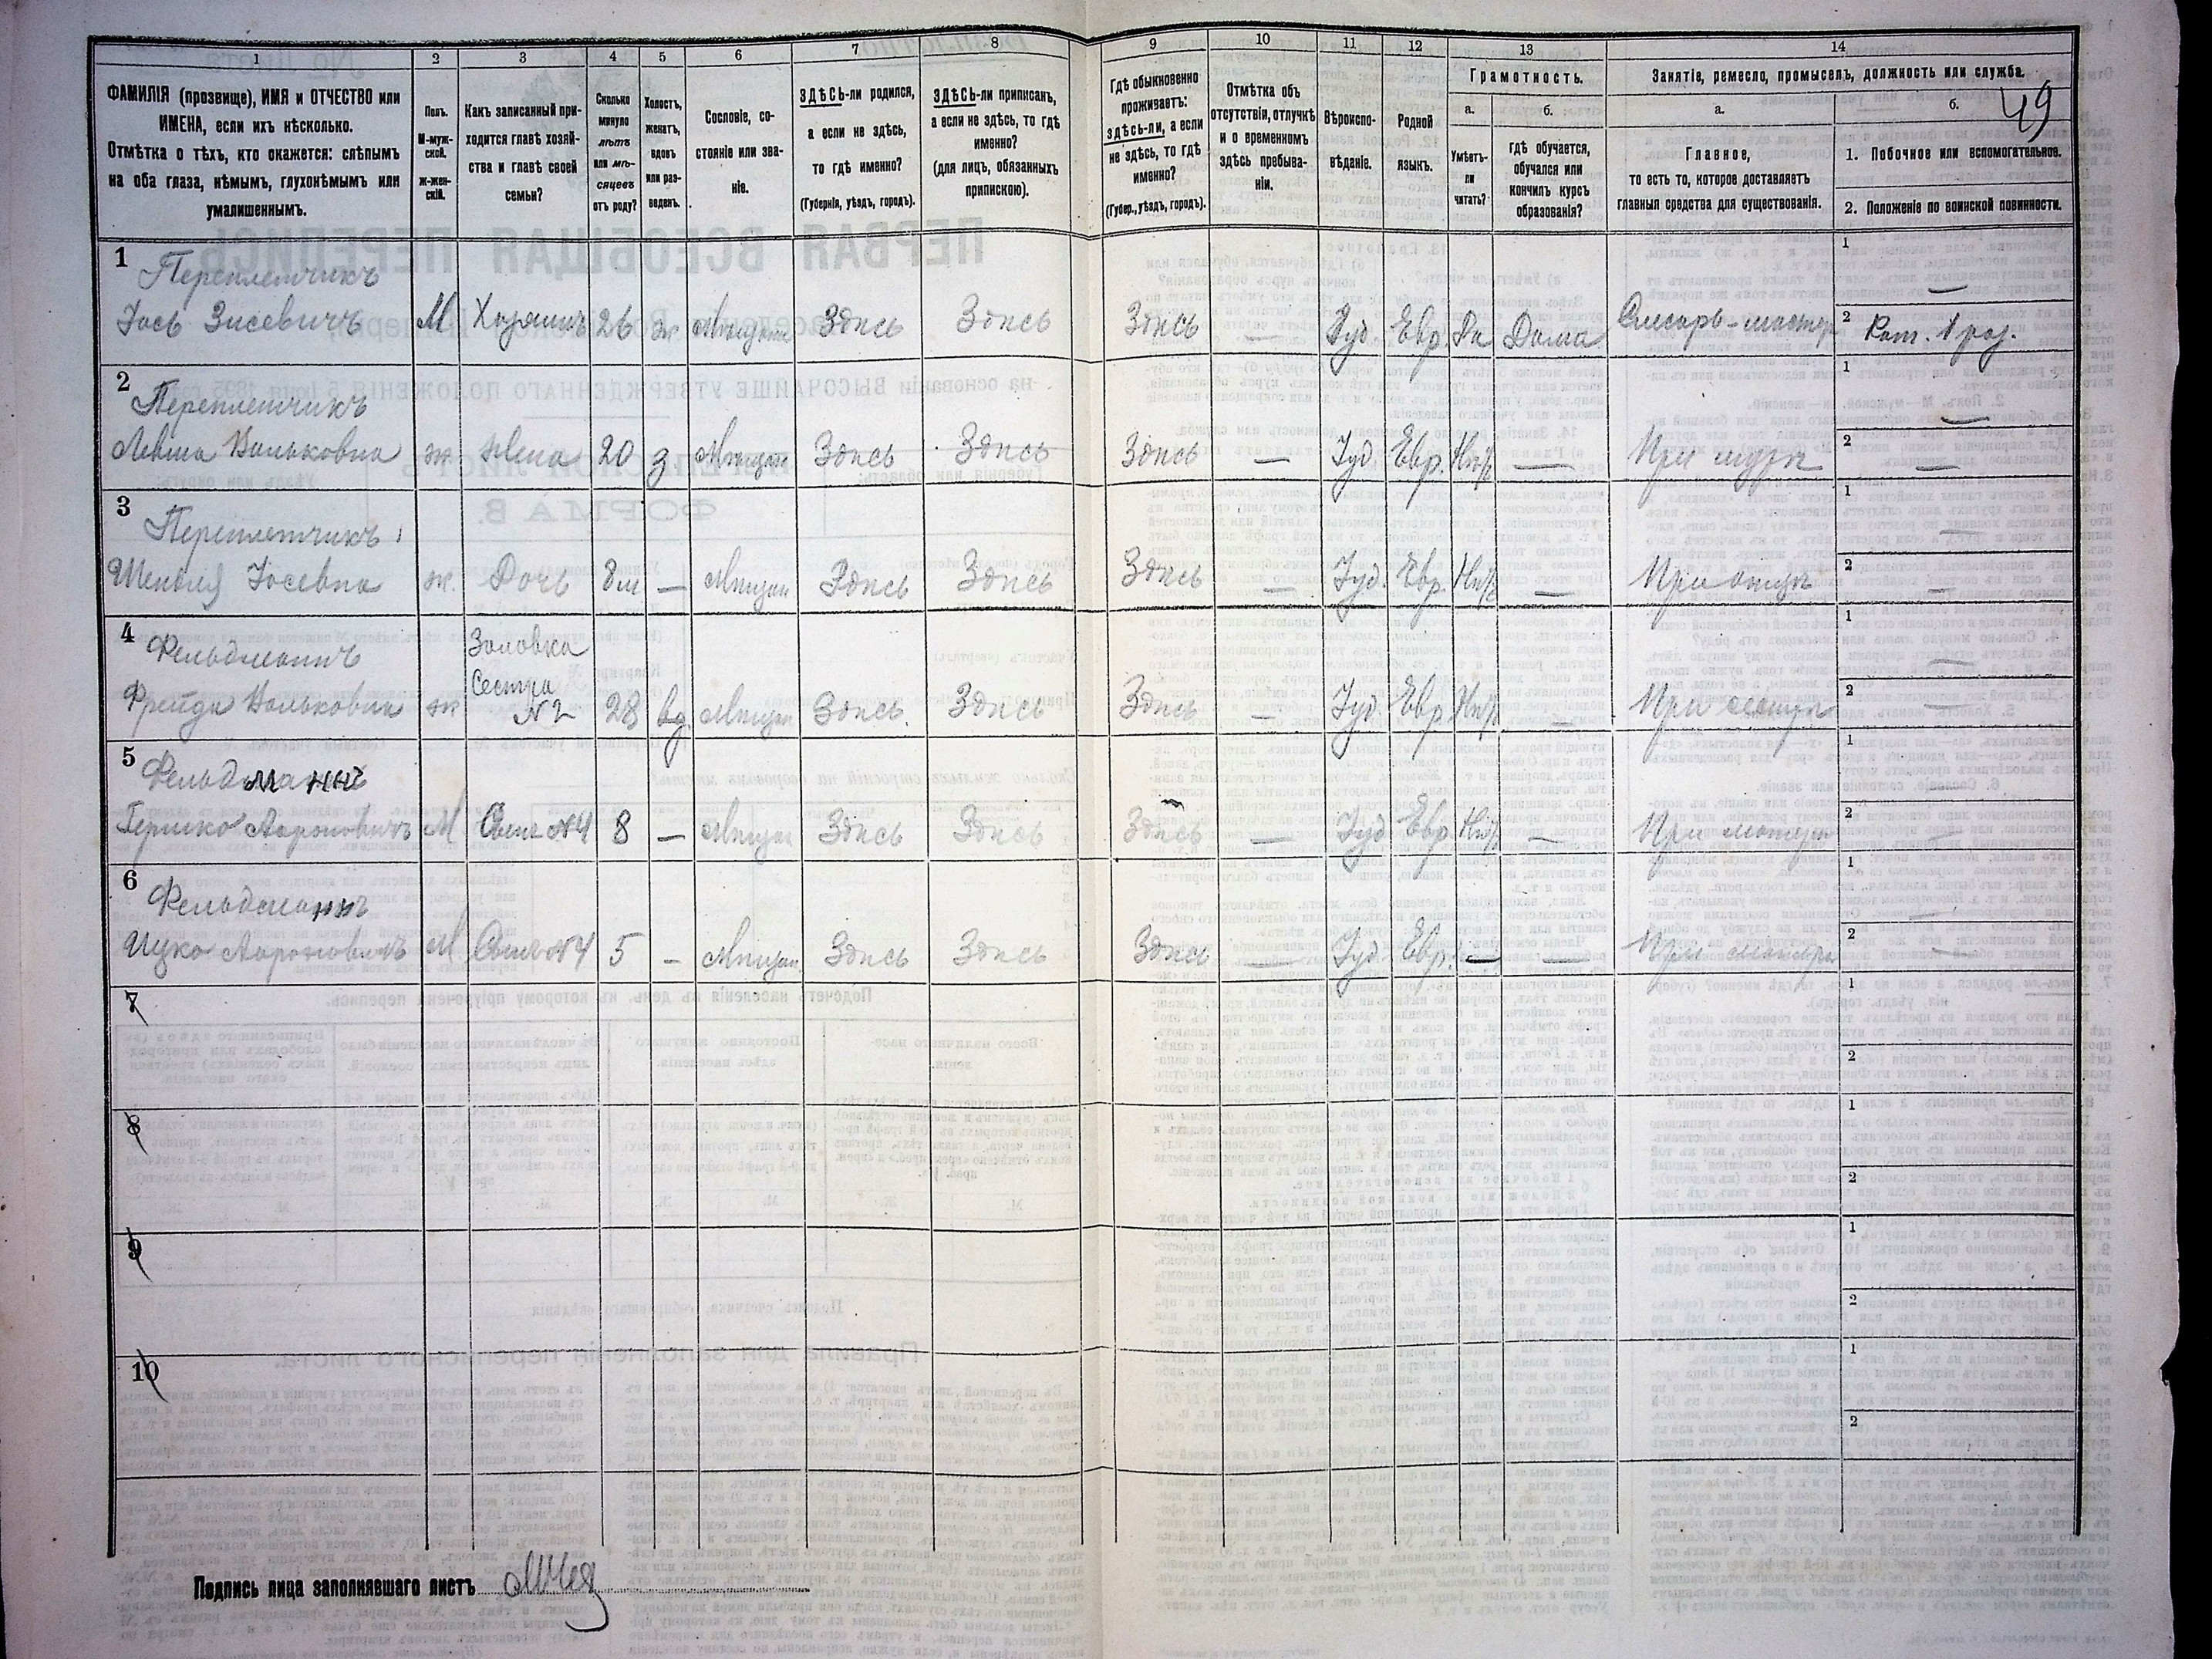 1 2 3 4 5 6 7 8 9 10 11 12 13 14
ФАМИЛІЯ (прозвище), ИМЯ и ОТЧЕСТВО или
ИМЕНА, если ихъ нѣсколько.
Отмѣтка о тѣхъ, кто окажется: слѣпымъ
на оба глаза, нѣмымъ, глухонѣмымъ или
умалишеннымъ.
Полъ.
М-муж-
ской.
Ж-жен-
скій.
Какъ записанный при-
ходится главѣ хозяй-
ства и главѣ своей
семьи?
Сколько
минуло
лѣтъ
или мѣ-
сяцевъ
отъ роду?
Холостъ,
женатъ,
вдовъ
или раз-
веденъ.
Сословіе, со-
стояніе или зва-
ніе.
ЗДѢСЬ-ли родился,
а если не здѣсь,
то гдѣ именно?
(Губернія, уѣздъ, городъ).
ЗДѢСЬ-ли приписанъ,
а если не здѣсь, то гдѣ
именно?
(для лицъ, обязанныхъ
припискою).
Гдѣ обыкновенно
проживаетъ:
здѣсь-ли, а если
не здѣсь, то гдѣ
именно?
(Губер., уѣздъ, городъ).
Отмѣтка объ
отсутствіи, отлучкѣ
и о временномъ
здѣсь пребыва-
ніи.
Вѣроиспо-
вѣданіе.
Родной
языкъ.
Грамотность.
а.
Умѣетъ-
ли
читать?
б.
гдѣ обучается,
обучался или
кончилъ курсъ
образованія?
Занятіе, ремесло, промыселъ, должность или служба.
49
а.
Главное,
то есть то, которое доставляетъ
главныя средства для существованія.
б.
1. Побочное или вспомогательное.
2. Положеніе по воинской повинности.
1 Переплетчикъ 1 —
Іось Зисевичъ М Хозяинъ 26 ж Мѣщан Здѣсь Здѣсь Здѣсь — Іуд. Евр. Да Дома Слесарь-мастер 2 Рат. 1 раз.
2 Переплетчикъ 1 —
Вольковна ж Жена 20 з Мѣщан Здѣсь Здѣсь Здѣсь — Іуд. Евр. Нѣтъ — При мужѣ 2 —
3 Переплетчикъ 1 —
Шендля Іосевна ж. Дочь 8 м — Мѣщан Здѣсь Здѣсь Здѣсь — Іуд. Евр. Нѣтъ — При отцѣ 2 —
4 Фельдманъ Золовка 1 —
Фрейда Вольковна ж Сестра №2 28 вд Мѣщан Здѣсь. Здѣсь Здѣсь — Іуд. Евр Нѣтъ — При сестрѣ 2 —
5 Фельдманнъ 1
Гершко Ароновичъ М Сынъ №4 8 — Мѣщан Здѣсь Здѣсь Здѣсь — Іуд Евр Нѣтъ — При матери 2 —
6 Фельдманнъ 1 —
Ицко Ароновичъ М Сынъ №4 5 — Мѣщан. Здѣсь Здѣсь Здѣсь — Іуд. Евр. — — При матери 2 —
7 1
2
8 1
2
9 1
2
10 1
2
Подпись лица заполнявшаго листъ